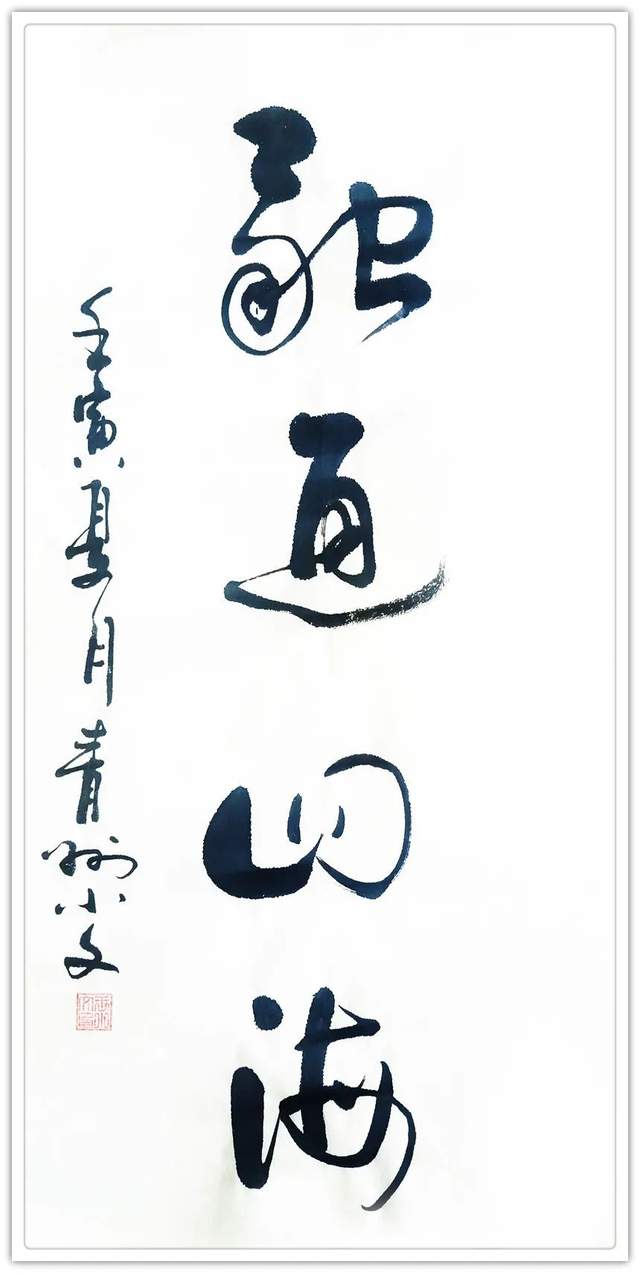 融通四海
壬寅夏月青州小文